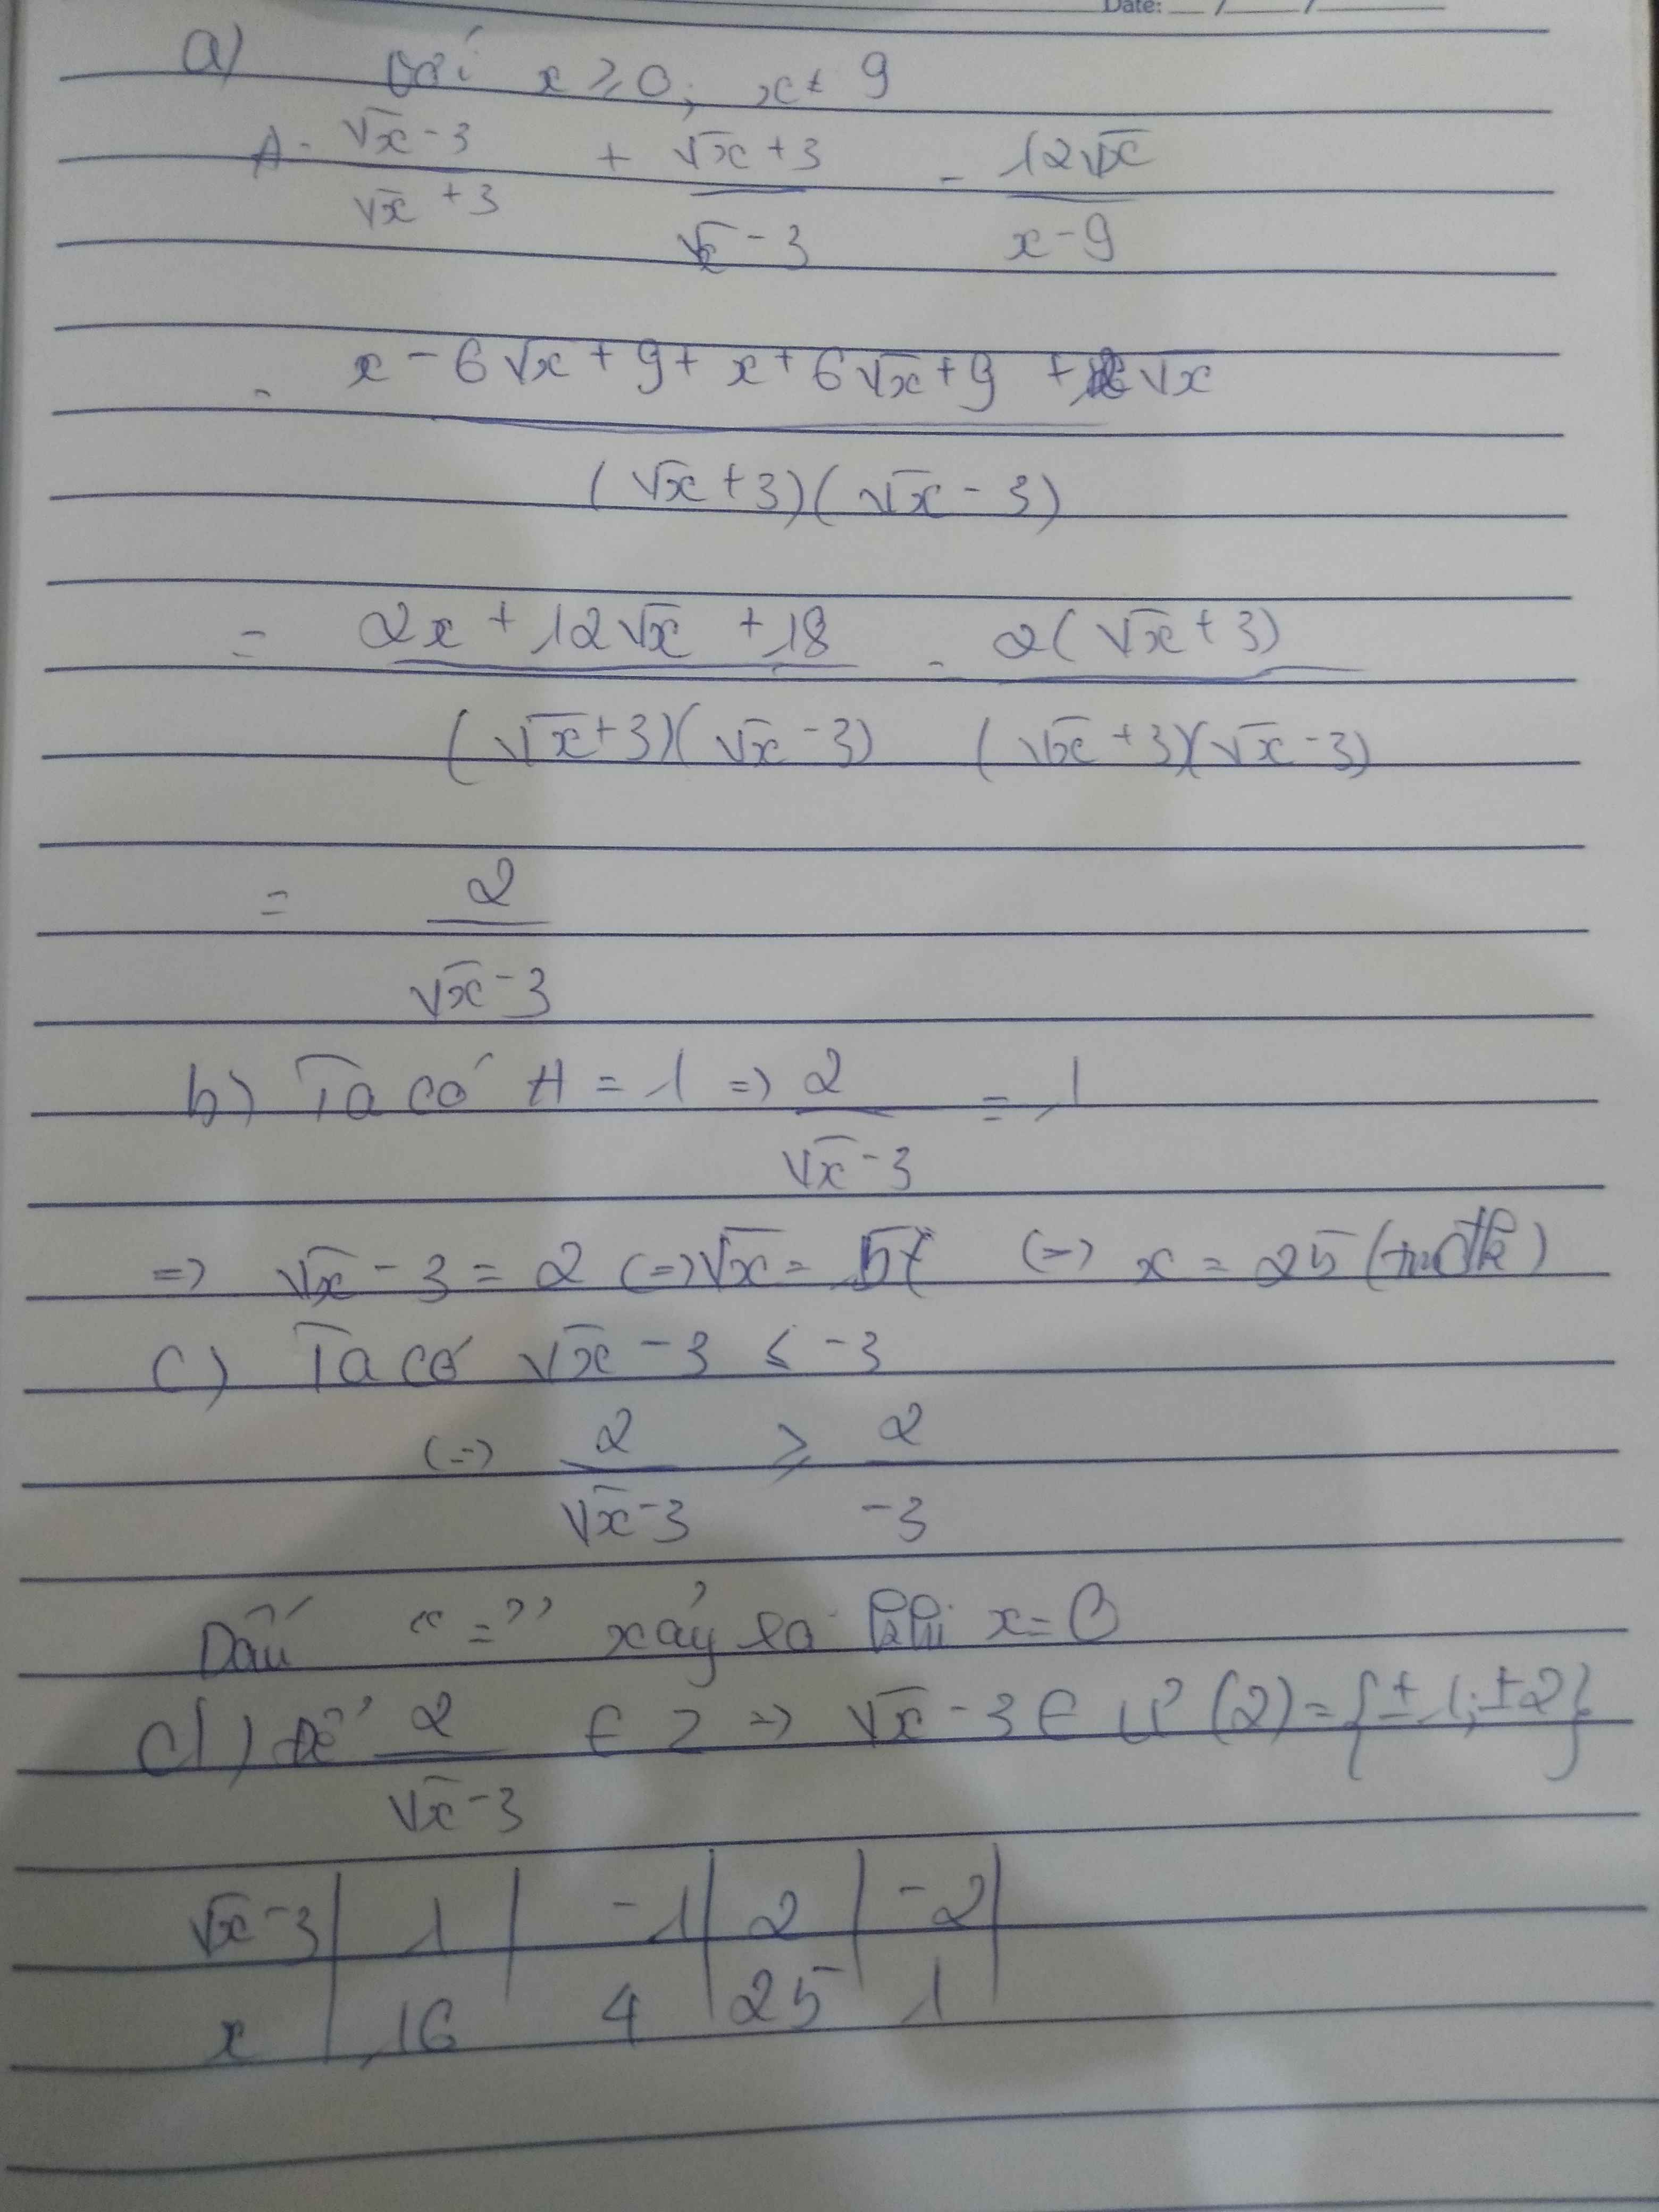 Date: __/__/__
a) Với x ≥ 0; x ≠ 9
A = (√x - 3)/(√x + 3) + (√x + 3)/(√x - 3) - 12√x/(x - 9)
= (x - 6√x + 9 + x + 6√x + 9 + 12√x)/((√x + 3)(√x - 3))
= (2x + 12√x + 18)/((√x + 3)(√x - 3)) = 2(√x + 3)/((√x + 3)(√x - 3))
= 2/(√x - 3)
b) Ta có A = 1 => 2/(√x - 3) = 1
=> √x - 3 = 2 (=) √x = 5 (=) x = 25 (tmđk)
c) Ta có √x - 3 ≤ -3
(=) 2/(√x - 3) ≥ 2/-3
Dấu “=” xảy ra khi x = 0
d) Để 2/(√x - 3) ∈ Z => √x - 3 ∈ Ư(2) = {±1; ±2}
√x - 3 | 1 | -1 | 2 | -2 |
x | 16 4 | 25 1